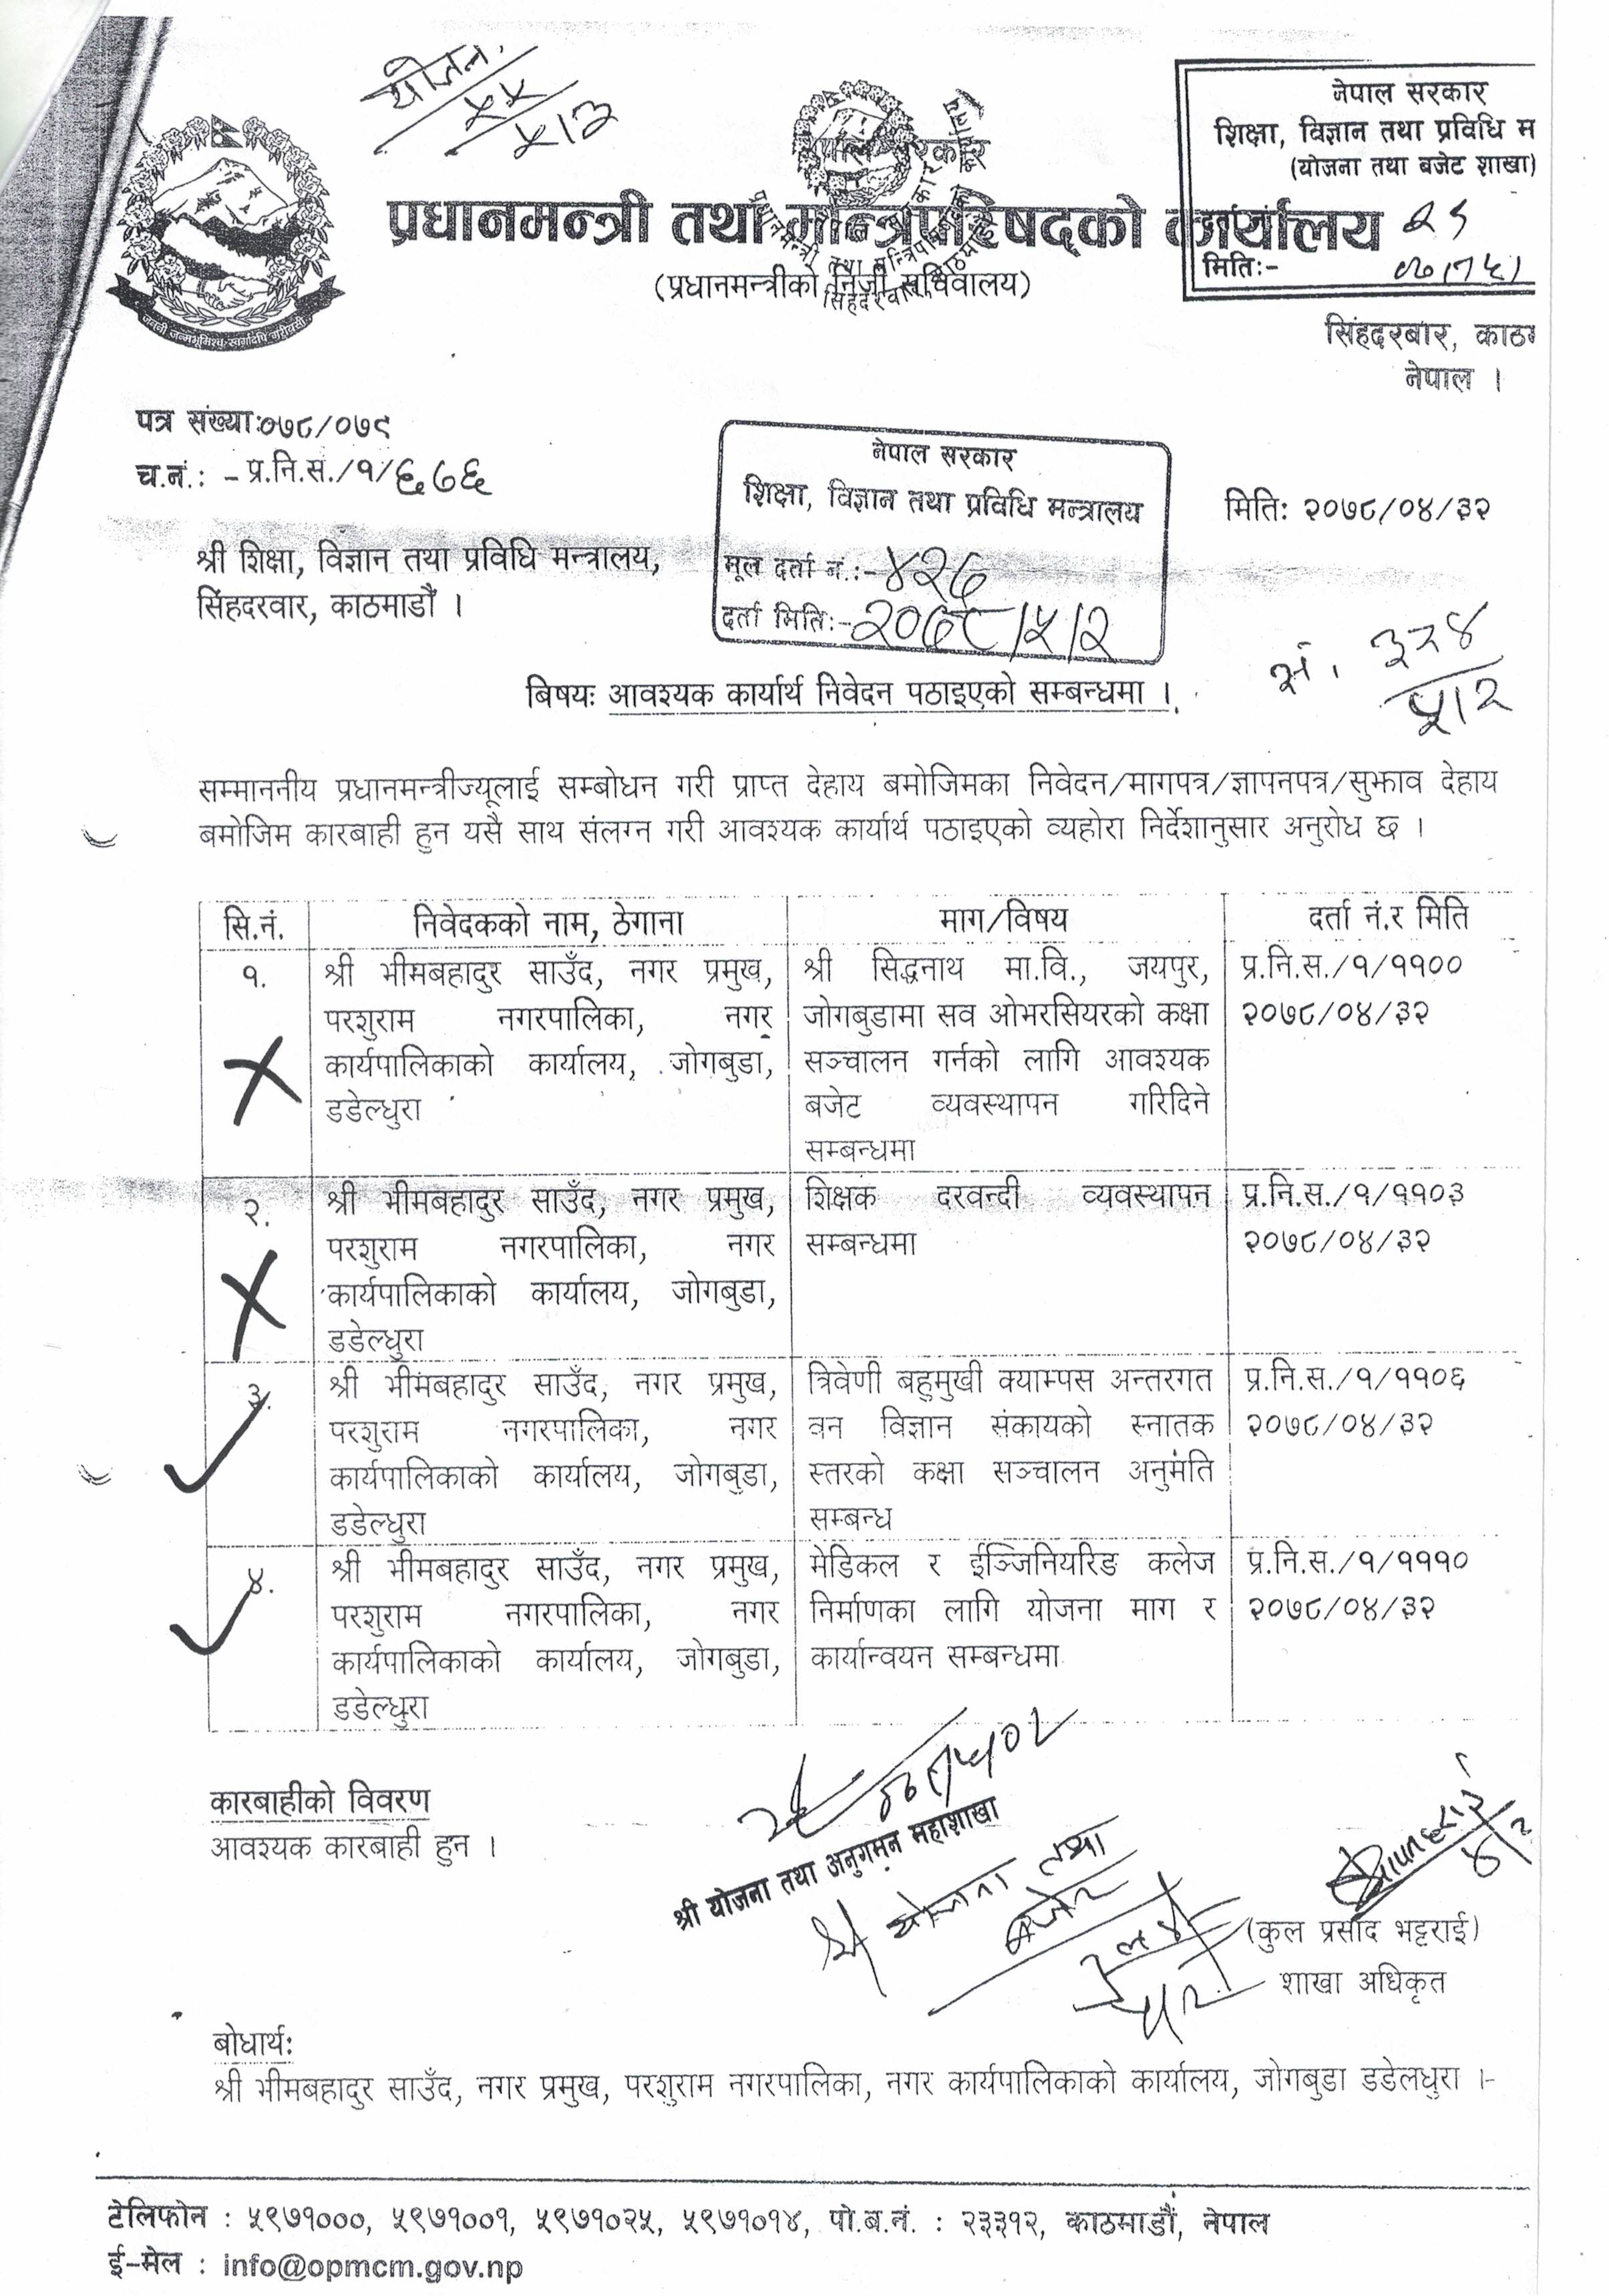 योजना
५।२
नेपाल सरकार
शिक्षा, विज्ञान तथा प्रविधि म
(योजना तथा बजेट शाखा)
दर्ता नं
मितिः-
प्रधानमन्त्री तथा मन्त्रिपरिषद्को कार्यालय
(प्रधानमन्त्रीको निजी सचिवालय)
सिंहदरबार, काठम
नेपाल ।
पत्र संख्याः०७८/०७९
च.नं.: - प्र.नि.स./१/६७६
नेपाल सरकार
शिक्षा, विज्ञान तथा प्रविधि मन्त्रालय
मूल दर्ता नं.:-४२६
दर्ता मितिः-२०७८/५/२
मितिः २०७८/०४/३२
श्री शिक्षा, विज्ञान तथा प्रविधि मन्त्रालय,
सिंहदरवार, काठमाडौं ।
५।२
बिषयः आवश्यक कार्यार्थ निवेदन पठाइएको सम्बन्धमा ।
सम्माननीय प्रधानमन्त्रीज्यूलाई सम्बोधन गरी प्राप्त देहाय बमोजिमका निवेदन/मागपत्र/ज्ञापनपत्र/सुझाव देहाय
बमोजिम कारबाही हुन यसै साथ संलग्न गरी आवश्यक कार्यार्थ पठाइएको व्यहोरा निर्देशानुसार अनुरोध छ ।
सि.नं. निवेदकको नाम, ठेगाना माग/विषय दर्ता नं.र मिति
१. श्री भीमबहादुर साउँद, नगर प्रमुख, श्री सिद्धनाथ मा.वि., जयपुर, प्र.नि.स./१/११००
परशुराम नगरपालिका, नगर जोगबुडामा सव ओभरसियरको कक्षा २०७८/०४/३२
कार्यपालिकाको कार्यालय, जोगबुडा, सञ्चालन गर्नको लागि आवश्यक
डडेल्धुरा बजेट व्यवस्थापन गरिदिने
सम्बन्धमा
२. श्री भीमबहादुर साउँद, नगर प्रमुख, शिक्षक दरवन्दी व्यवस्थापन प्र.नि.स./१/११०३
परशुराम नगरपालिका, नगर सम्बन्धमा २०७८/०४/३२
कार्यपालिकाको कार्यालय, जोगबुडा,
डडेल्धुरा
३. श्री भीमबहादुर साउँद, नगर प्रमुख, त्रिवेणी बहुमुखी क्याम्पस अन्तरगत प्र.नि.स./१/११०६
परशुराम नगरपालिका, नगर वन विज्ञान संकायको स्नातक २०७८/०४/३२
कार्यपालिकाको कार्यालय, जोगबुडा, स्तरको कक्षा सञ्चालन अनुमति
डडेल्धुरा सम्बन्ध
४. श्री भीमबहादुर साउँद, नगर प्रमुख, मेडिकल र ईञ्जिनियरिङ कलेज प्र.नि.स./१/१११०
परशुराम नगरपालिका, नगर निर्माणका लागि योजना माग र २०७८/०४/३२
कार्यपालिकाको कार्यालय, जोगबुडा, कार्यान्वयन सम्बन्धमा
डडेल्धुरा
कारबाहीको विवरण
आवश्यक कारबाही हुन ।
श्री योजना तथा अनुगमन महाशाखा
श्री योजना तथा
बजेट
५।२
(कुल प्रसाद भट्टराई)
शाखा अधिकृत
बोधार्थः
श्री भीमबहादुर साउँद, नगर प्रमुख, परशुराम नगरपालिका, नगर कार्यपालिकाको कार्यालय, जोगबुडा डडेलधुरा ।-
टेलिफोन : ५९७१०००, ५९७१००१, ५९७१०२५, ५९७१०१४, पो.ब.नं. : २३३१२, काठमाडौं, नेपाल
ई-मेल : info@opmcm.gov.np